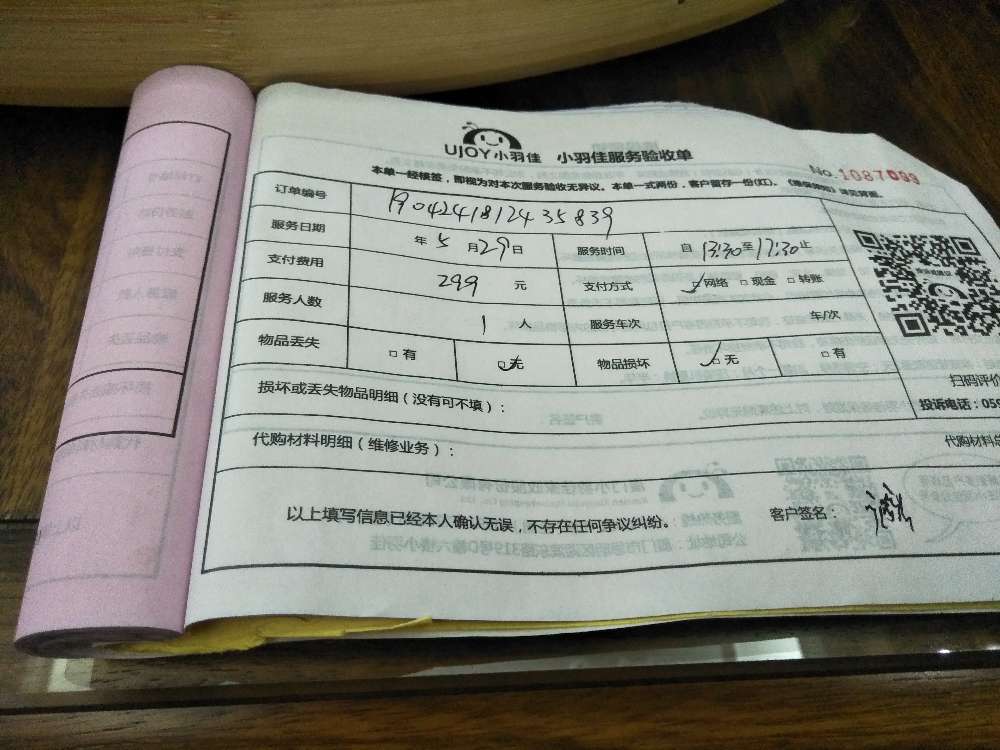 UJOY小羽佳 小羽佳服务验收单
No.1087099
本单一经核签，即视为对本次服务验收无异议。本单一式两份，客户留存一份(红)。
订单编号 190424181243 5839
服务日期 年 5 月 29 日 服务时间 自 13:30 至 17:30 止
支付费用 299 元 支付方式 □网络 □现金 □转账
服务人数 1 人 服务车次 车/次
物品丢失 □有 □无 物品损坏 □无 □有
损坏或丢失物品明细（没有可不填）：
扫码评价
投诉电话：059
代购材料明细（维修业务）：
代购材料总
以上填写信息已经本人确认无误，不存在任何争议纠纷。 客户签名：